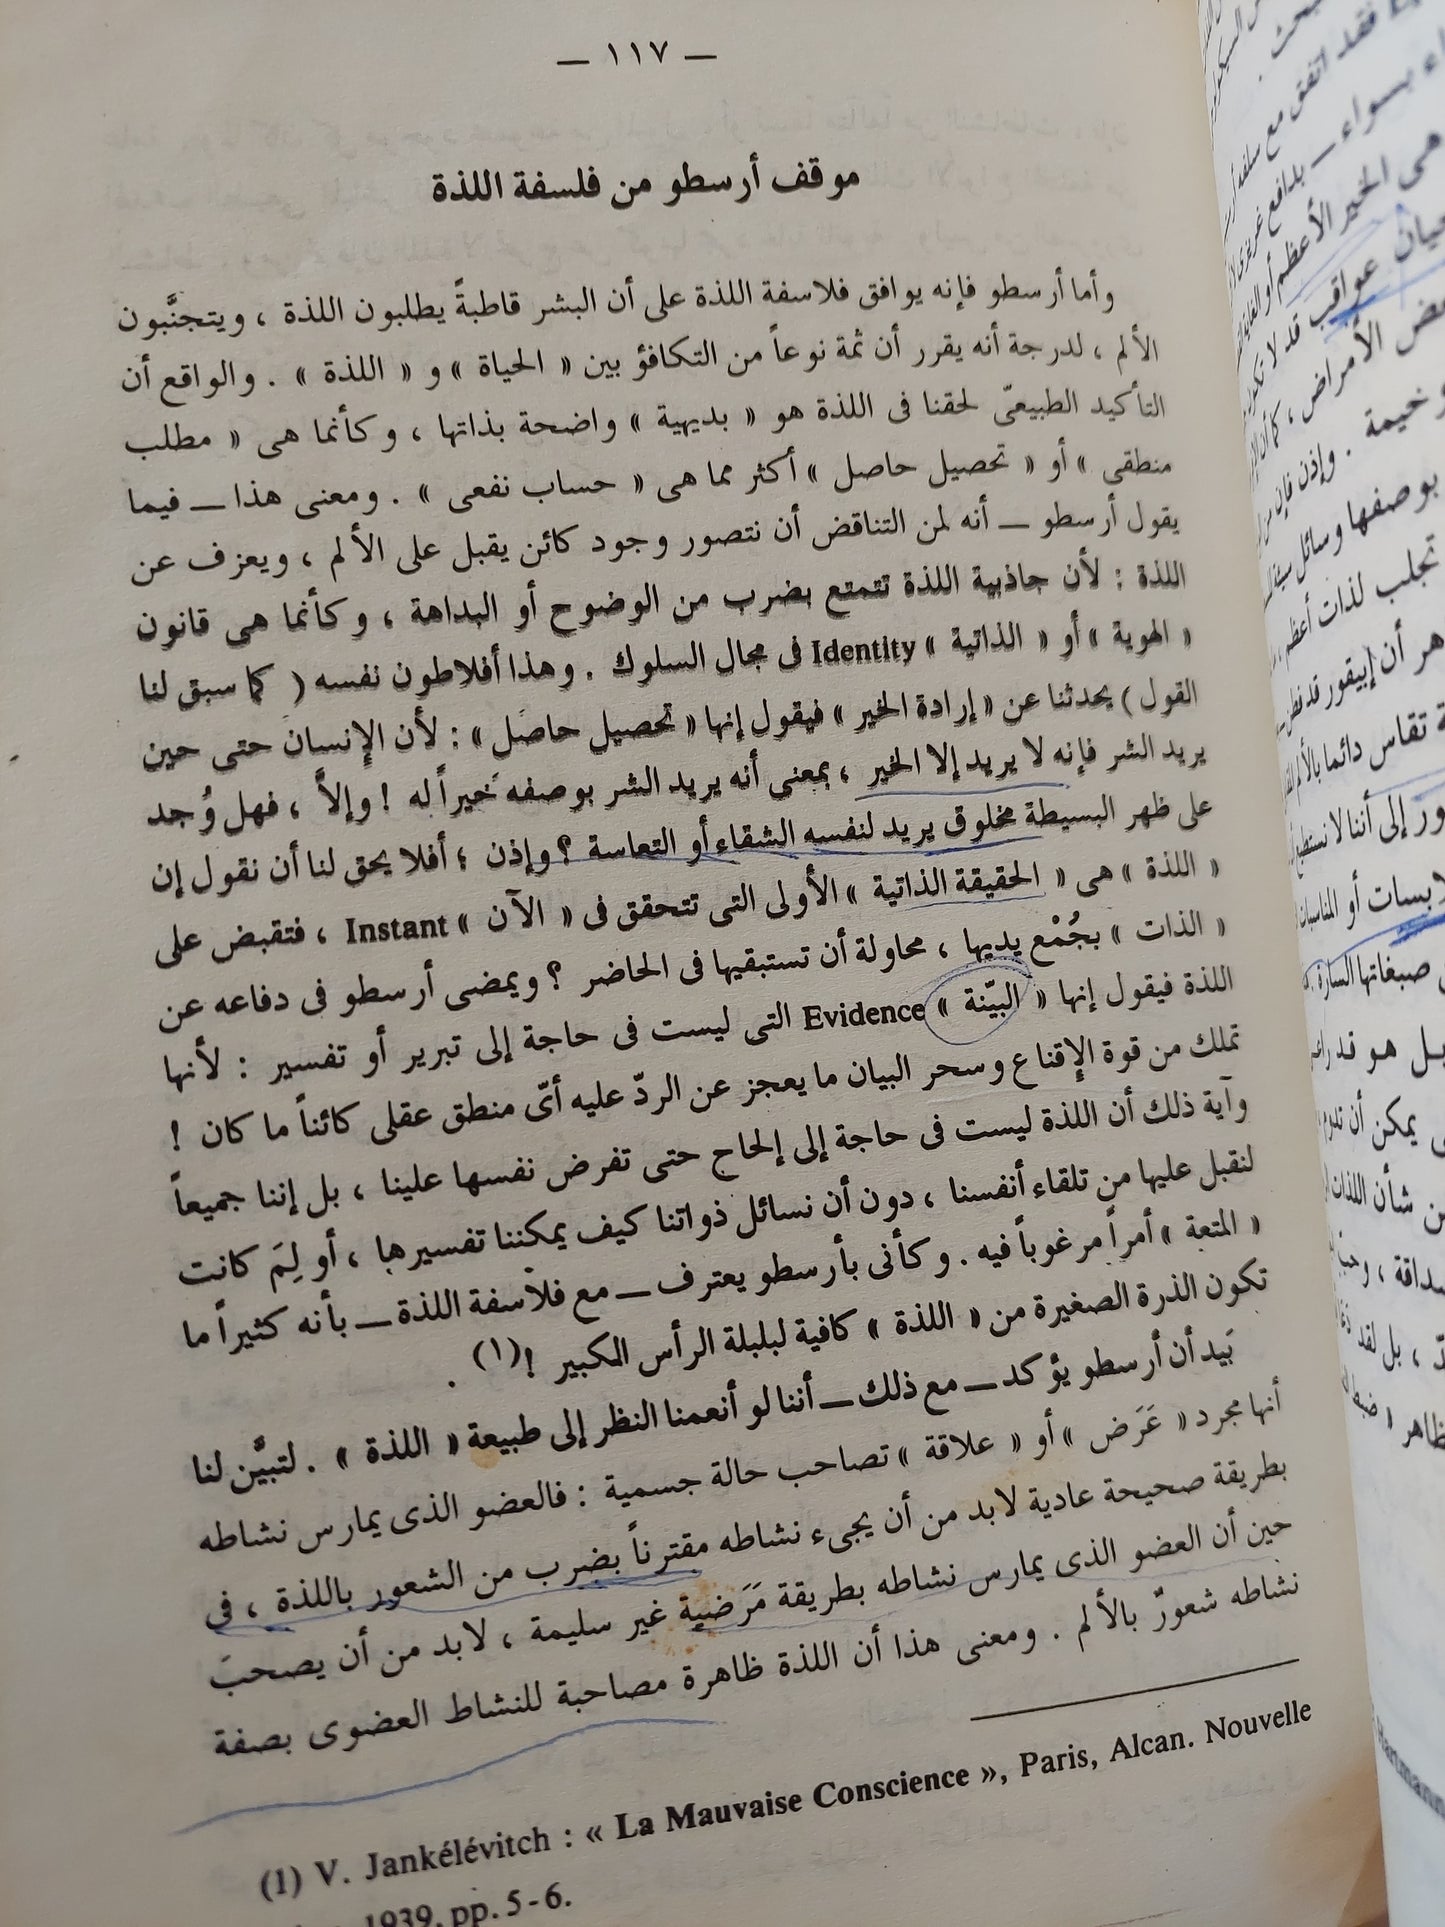 — ١١٧ —
موقف أرسطو من فلسفة اللذة
وأما أرسطو فإنه يوافق فلاسفة اللذة على أن البشر قاطبةً يطلبون اللذة ، ويتجنَّبون
الألم ، لدرجة أنه يقرر أن ثمة نوعاً من التكافؤ بين « الحياة » و « اللذة » . والواقع أن
التأكيد الطبيعىّ لحقنا فى اللذة هو « بديهية » واضحة بذاتها ، وكأنما هى « مطلب
منطقى » أو « تحصيل حاصل » أكثر مما هى « حساب نفعى » . ومعنى هذا — فيما
يقول أرسطو — أنه لمن التناقض أن نتصور وجود كائن يقبل على الألم ، ويعزف عن
اللذة : لأن جاذبية اللذة تتمتع بضرب من الوضوح أو البداهة ، وكأنما هى قانون
« الهوية » أو « الذاتية » Identity فى مجال السلوك . وهذا أفلاطون نفسه ( كما سبق لنا
القول ) يحدثنا عن « إرادة الخير » فيقول إنها « تحصيل حاصل » : لأن الإنسان حتى حين
يريد الشر فإنه لا يريد إلا الخير ، بمعنى أنه يريد الشر بوصفه خيراً له ! وإلاَّ ، فهل وُجد
على ظهر البسيطة مخلوق يريد لنفسه الشقاء أو التعاسة ؟ وإذن ؛ أفلا يحق لنا أن نقول إن
« اللذة » هى « الحقيقة الذاتية » الأولى التى تتحقق فى « الآن » Instant ، فتقبض على
« الذات » بجُمْع يديها ، محاولة أن تستبقيها فى الحاضر ؟ ويمضى أرسطو فى دفاعه عن
اللذة فيقول إنها « البيّنة » Evidence التى ليست فى حاجة إلى تبرير أو تفسير : لأنها
تملك من قوة الإقناع وسحر البيان ما يعجز عن الردّ عليه أىّ منطق عقلى كائناً ما كان !
وآية ذلك أن اللذة ليست فى حاجة إلى إلحاح حتى تفرض نفسها علينا ، بل إننا جميعاً
لنقبل عليها من تلقاء أنفسنا ، دون أن نسائل ذواتنا كيف يمكننا تفسيرها ، أو لِمَ كانت
« المتعة » أمراً مرغوباً فيه . وكأنى بأرسطو يعترف — مع فلاسفة اللذة — بأنه كثيراً ما
تكون الذرة الصغيرة من « اللذة » كافية لبلبلة الرأس الكبير !(١) .
بَيد أن أرسطو يؤكد — مع ذلك — أننا لو أنعمنا النظر إلى طبيعة « اللذة » . لتبيَّن لنا
أنها مجرد « عَرَض » أو « علاقة » تصاحب حالة جسمية : فالعضو الذى يمارس نشاطه
بطريقة صحيحة عادية لابد من أن يجىء نشاطه مقترناً بضرب من الشعور باللذة ، فى
حين أن العضو الذى يمارس نشاطه بطريقة مَرَضية غير سليمة ، لابد من أن يصحبَ
نشاطه شعورٌ بالألم . ومعنى هذا أن اللذة ظاهرة مصاحبة للنشاط العضوى بصفة
(1) V. Jankélévitch : « La Mauvaise Conscience », Paris, Alcan. Nouvelle
1939, pp. 5-6.
فقد اتفق مع سلفه
بسواء — بدافع غريزى
هى الخير الأعظم أو الغاية
عواقب قد لا تكون
بعض الأمراض ، كما أن
وخيمة . وإذن فإن من
بوصفها وسائل سيئة
تجلب لذات أعظم
أن إبيقور قد فطن
تقاس دائما بالألم
إلى أننا لا نستطيع
أو المناسبات
صبغاتها السارة
بل هو قد
يمكن أن تدوم
من شأن اللذات
، بل لقد
Hartmann